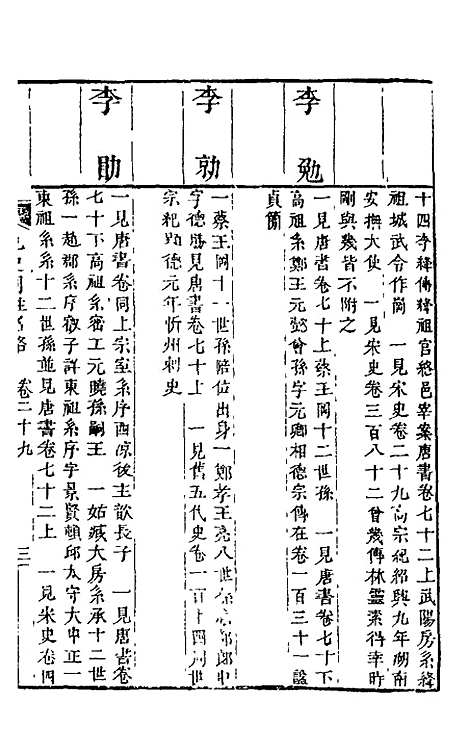 十四李絳傳絳祖官終邑宰案唐書卷七十二上武陽房系絳
祖城武令作岡　一見宋史卷二十九高宗紀紹興九年湖南
安撫大使　一見宋史卷三百八十二曾幾傳林靈素得幸時
剛與幾皆不附之
李勉
一見唐書卷七十上蔡王岡十二世孫　一見唐書卷七十下
高祖系鄭王元懿曾孫字元卿相德宗傳在卷一百三十一謚
貞簡
李勍
一蔡王岡十一世孫陪位出身一鄭孝王亮八世孫郎中
字德廣見唐書卷七十上　一見舊五代史卷一百十四周世
宗紀顯德元年忻州刺史
李勛
一見唐書卷同上宗室系序西涼後主歆長子　一見唐書卷
七十下高祖系密王元曉孫嗣王　一姑臧大房系承十二世
孫一趙郡系序敬子詳東祖系序字景賢頓邱太守大中正一
東祖系系十二世孫並見唐書卷七十二上　一見宋史卷四
九史同姓名略　卷二十九　三